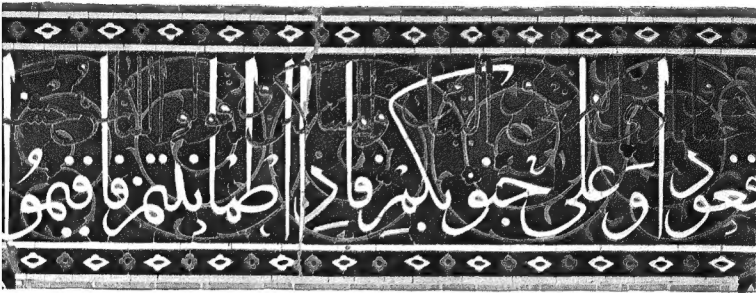 قعودا وَعلى جنُوبكم فاِذا اطمأننتم فاقيمُوا